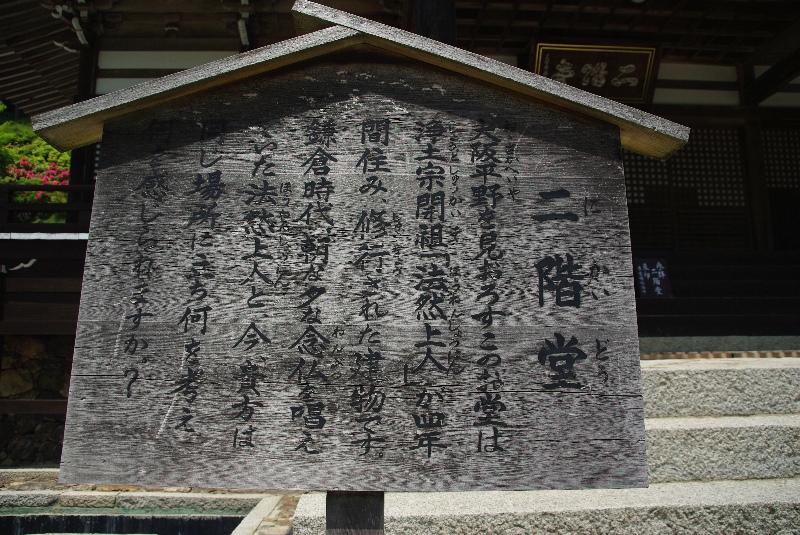 二階堂
にかいどう
大阪平野を見おろすこのお堂は
浄土宗開祖「法然上人」が四年
間住み、修行された建物です。
鎌倉時代、朝な夕な念仏を唱え
ていた法然上人と、今、貴方は
同じ場所に立ち何を考え
何を感じられますか。?
二階堂